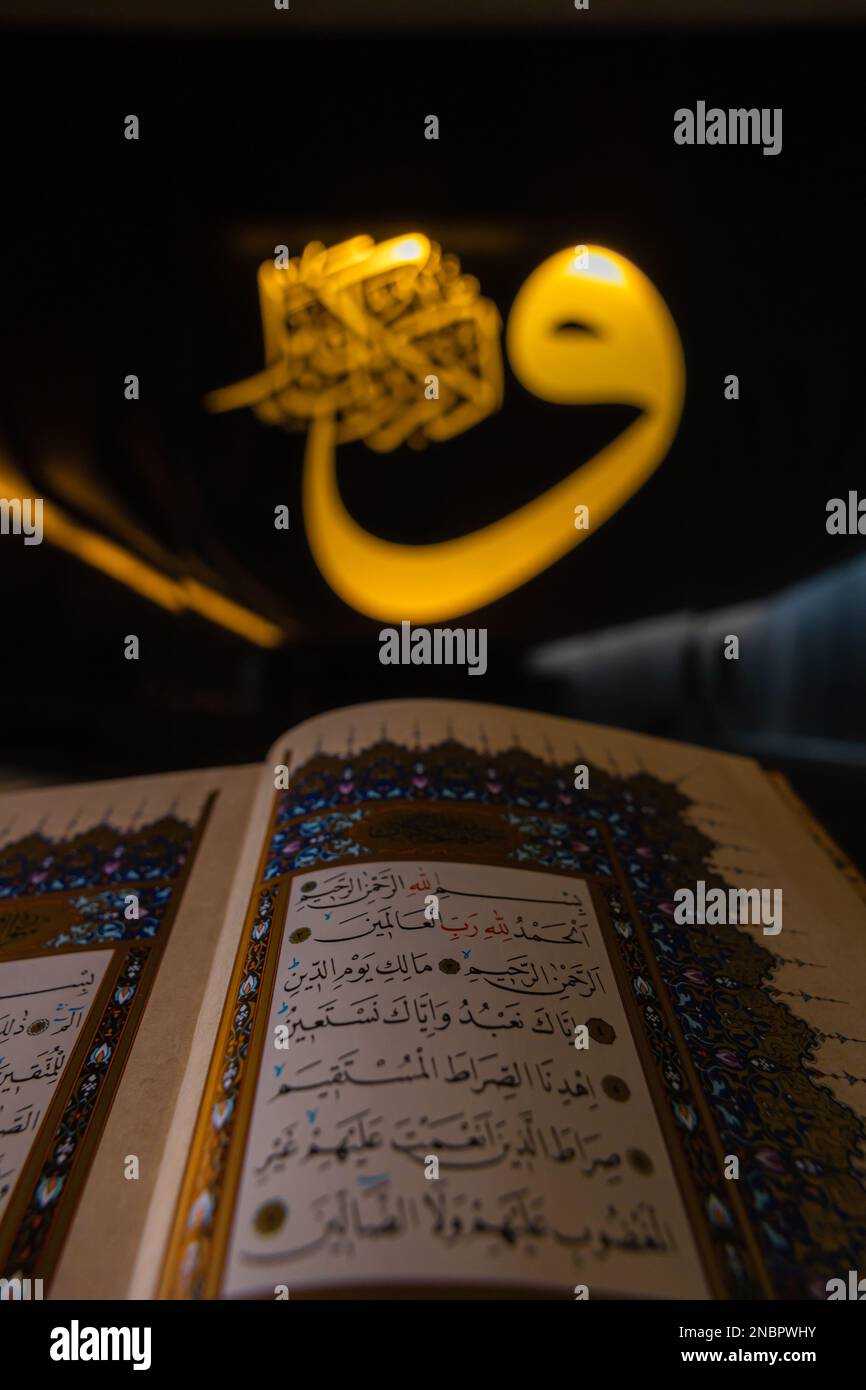 و
بِسْمِ اللهِ الرَّحْمٰنِ الرَّحِيمِ
اَلْحَمْدُ لِلّٰهِ رَبِّ الْعَالَمِينَ
اَلرَّحْمٰنِ الرَّحِيمِ مَالِكِ يَوْمِ الدِّينِ
اِيَّاكَ نَعْبُدُ وَاِيَّاكَ نَسْتَعِينُ
اِهْدِنَا الصِّرَاطَ الْمُسْتَقِيمَ
صِرَاطَ الَّذِينَ اَنْعَمْتَ عَلَيْهِمْ غَيْرِ
الْمَغْضُوبِ عَلَيْهِمْ وَلَا الضَّالِّينَ
الٓمٓ
alamy
Image ID: 2NBPWHY
www.alamy.com